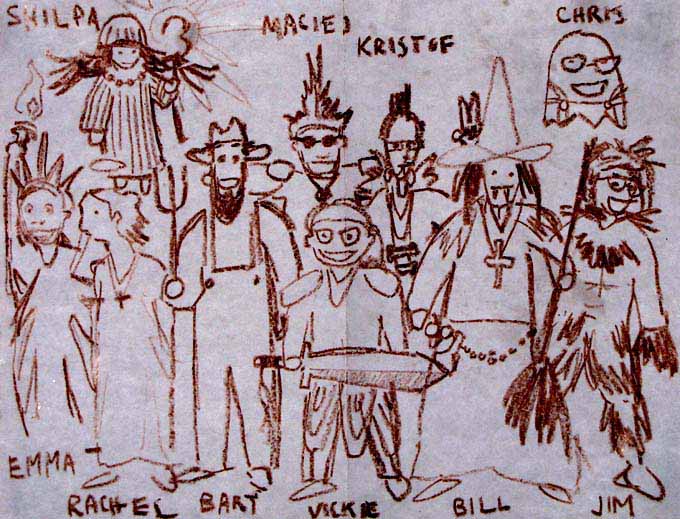 SHILPA
MACIEJ
KRISTOF
CHRIS
EMMA
RACHEL
BART
VICKIE
BILL
JIM